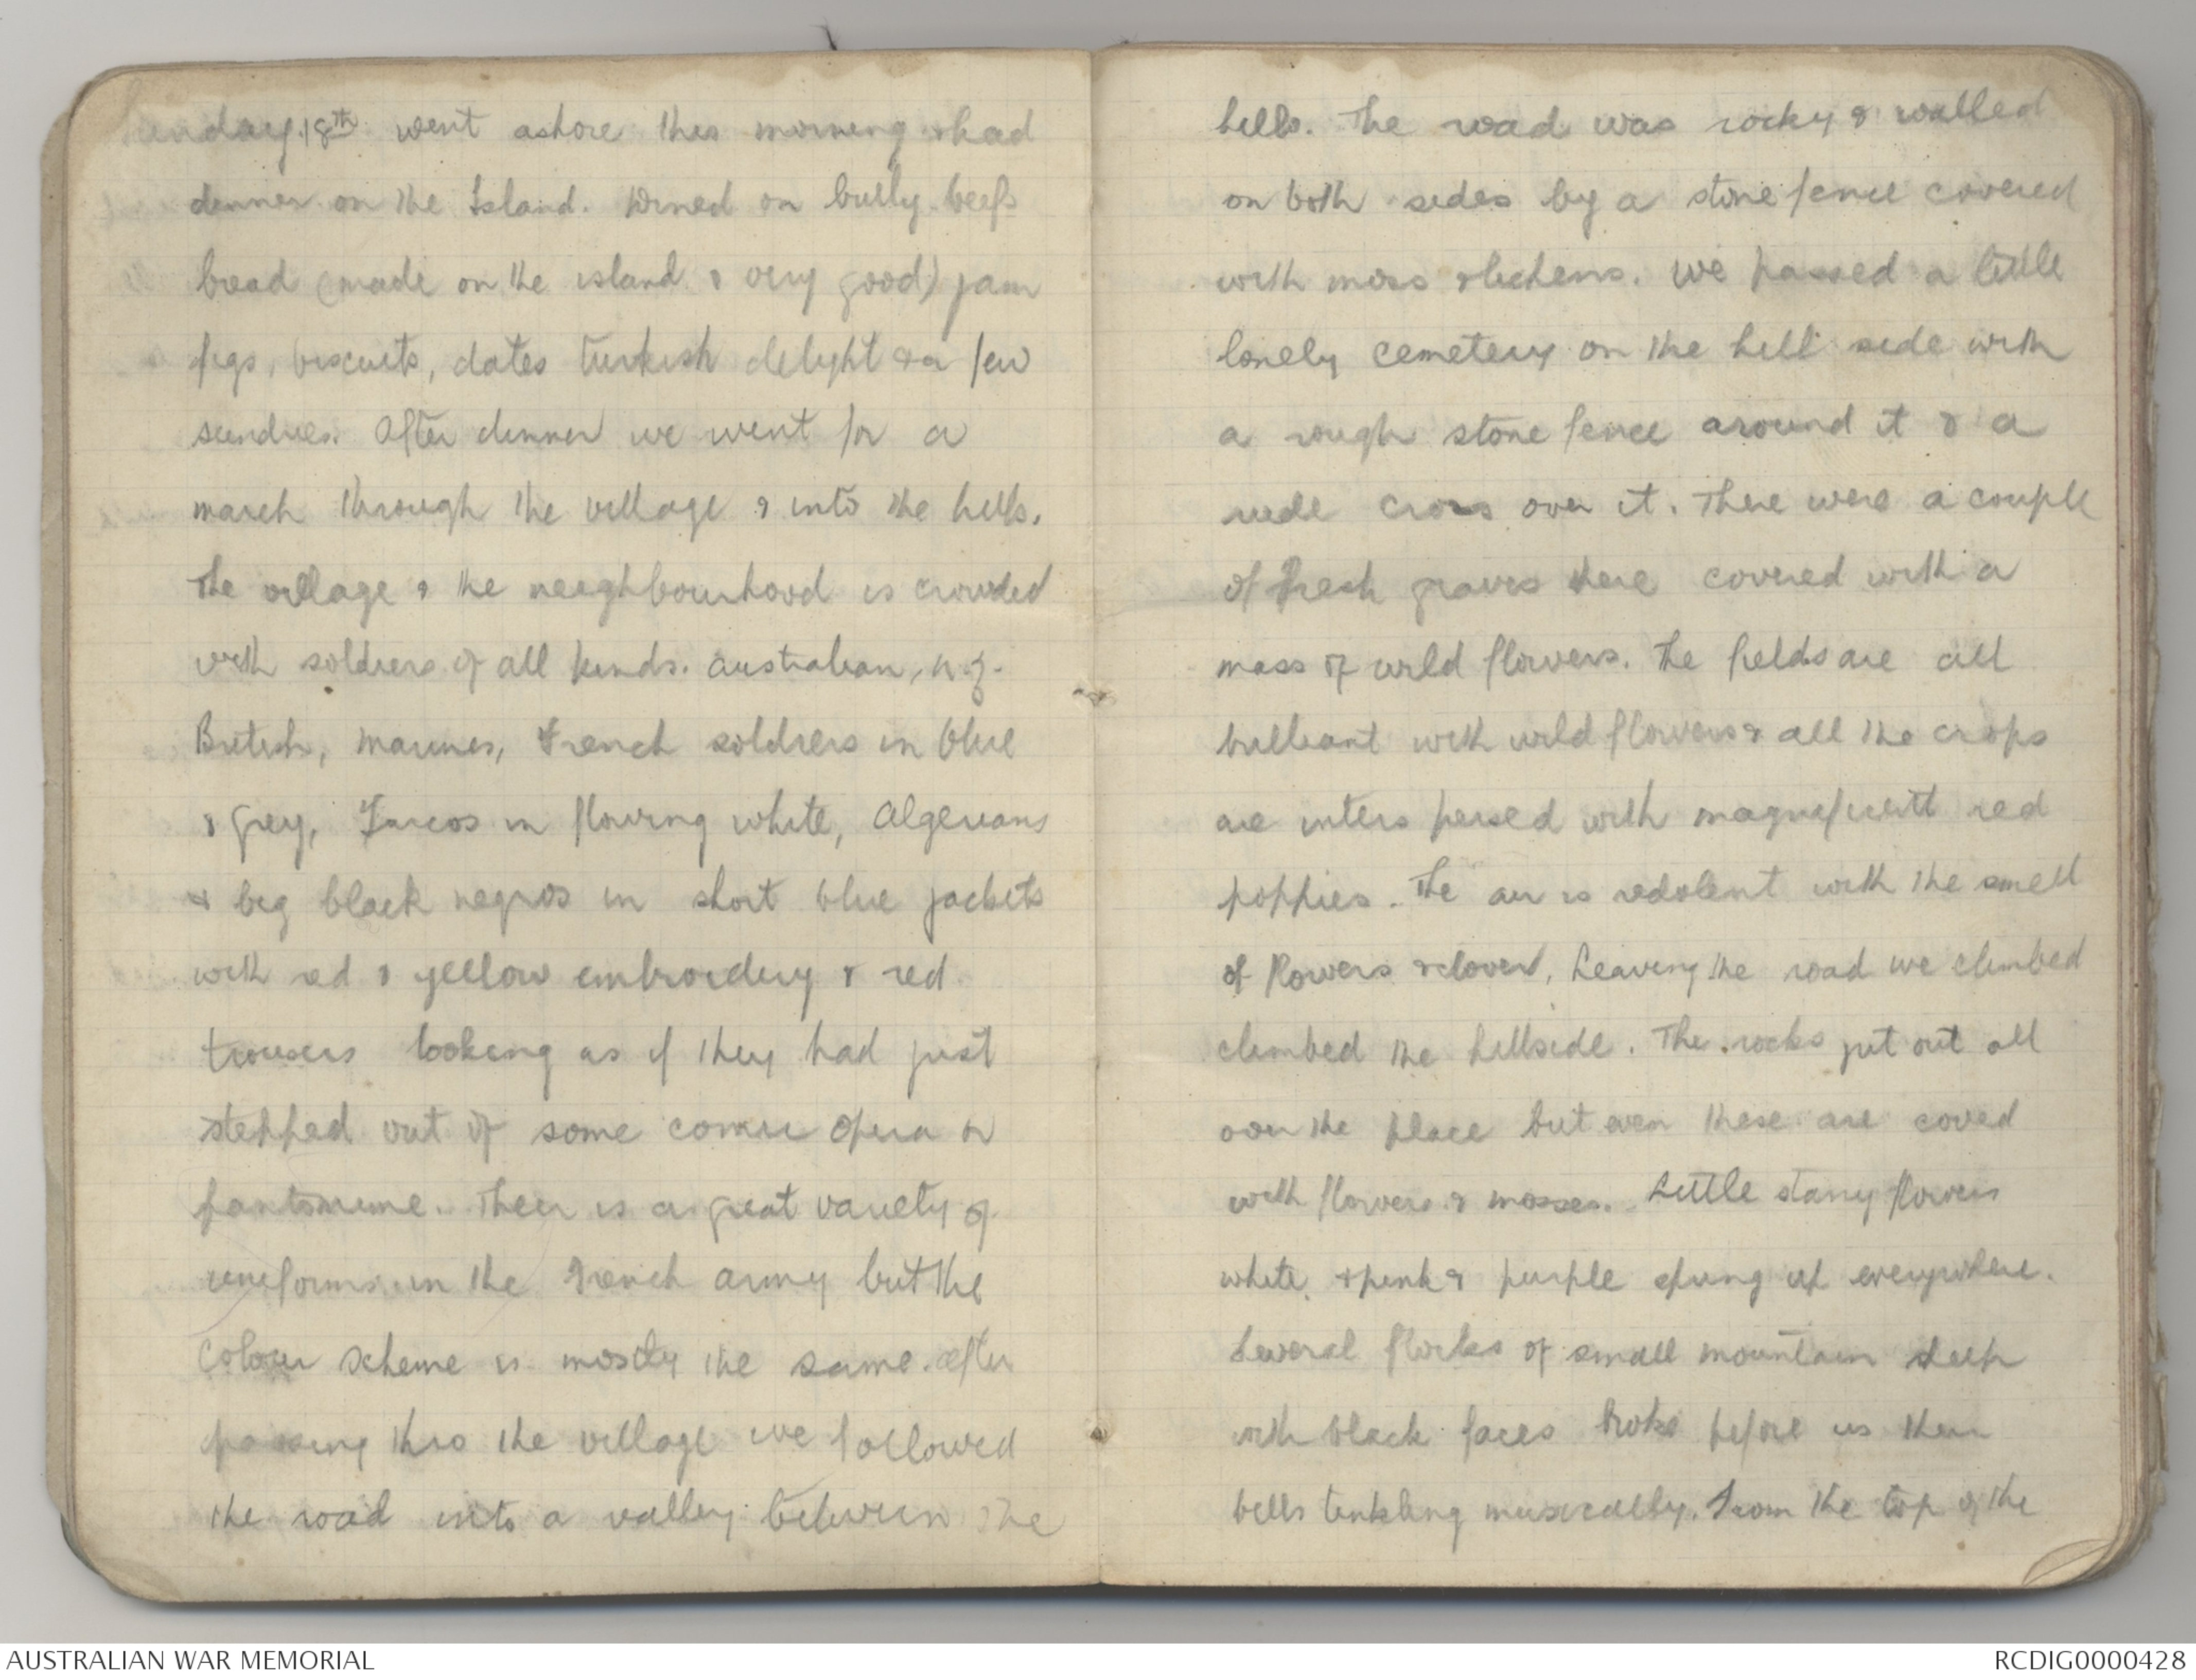 Sunday 18th went ashore this morning & had
dinner on the Island. Dined on bully beef
bread (made on the island & very good) jam
figs, biscuits, dates turkish delight & a few
sundries. After dinner we went for a
march through the village & into the hills.
The village & the neighbourhood is crowded
with soldiers of all kinds. Australian, N.Z.
British, Marines, French soldiers in blue
& grey, Turcos in flowing white, Algerians
& big black negros in short blue jackets
with red & yellow embroidery & red
trousers looking as if they had just
stepped out of some comic opera or
pantomime. Their is a great variety of
uniforms in the French army but the
colour scheme is mostly the same. After
passing thro the village we followed
the road into a valley between the
hills. The road was rocky & walled
on both sides by a stone fence covered
with moss & lichens. We passed a little
lonely cemetery on the hill side with
a rough stone fence around it & a
rude cross over it. There were a couple
of fresh graves there covered with a
mass of wild flowers. The fields are all
brilliant with wild flowers & all the crops
are inters persed with magnificent red
poppies. The air is redolent with the smell
of flowers & clover. Leaving the road we climbed
climbed the hillside. The rocks jut out all
over the place but even these are coved
with flowers & mosses. Little starry flowers
white & pink & purple spring up everywhere.
Several flocks of small mountain sheep
with black faces broke before us their
bells tinkling musically. From the top of the
AUSTRALIAN WAR MEMORIAL
RCDIG0000428